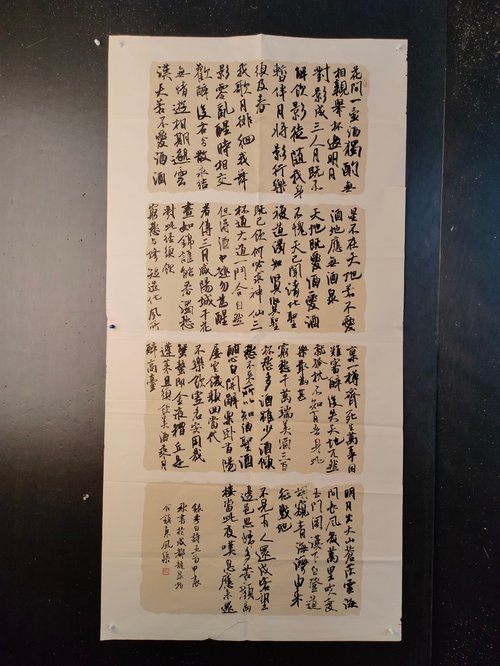 花間一壺酒獨酌無
相親舉杯邀明月
對影成三人月既不
解飲影徒隨我身
暫伴月將影行樂
須及春
我歌月徘徊我舞
影零亂醒時相交
歡醉後各分散永結
無情遊相期邈雲
漢天若不愛酒酒
星不在天地若不愛
酒地應無酒泉
天地既愛酒愛酒
不愧天已聞清比聖
復道濁如賢賢聖
既已飲何必求神仙三
杯通大道一斗合自然
但得酒中趣勿為醒
者傳三月咸陽城千花
晝如錦誰能春獨愁
對此徑須飲
窮通與修短造化夙所
稟一樽齊死生萬事固
難審醉後失天地兀然
就孤枕不知有吾身此
樂最為甚
窮愁千萬端美酒三百
杯愁多酒雖少酒傾
愁不來所以知酒聖酒
酣心自開辭粟臥首陽
屢空飢顏回當代
不樂飲虛名安用哉
蟹螯即金液糟丘是
蓬萊且須飲美酒乘月
醉高臺
明月出天山蒼茫雲海
間長風幾萬里吹度
玉門關漢下白登道
胡窺青海灣由來
征戰地
不見有人還戍客望
邊邑思歸多苦顏高
樓當此夜嘆息應未還
錄李白詩五首甲辰
秋書於成都